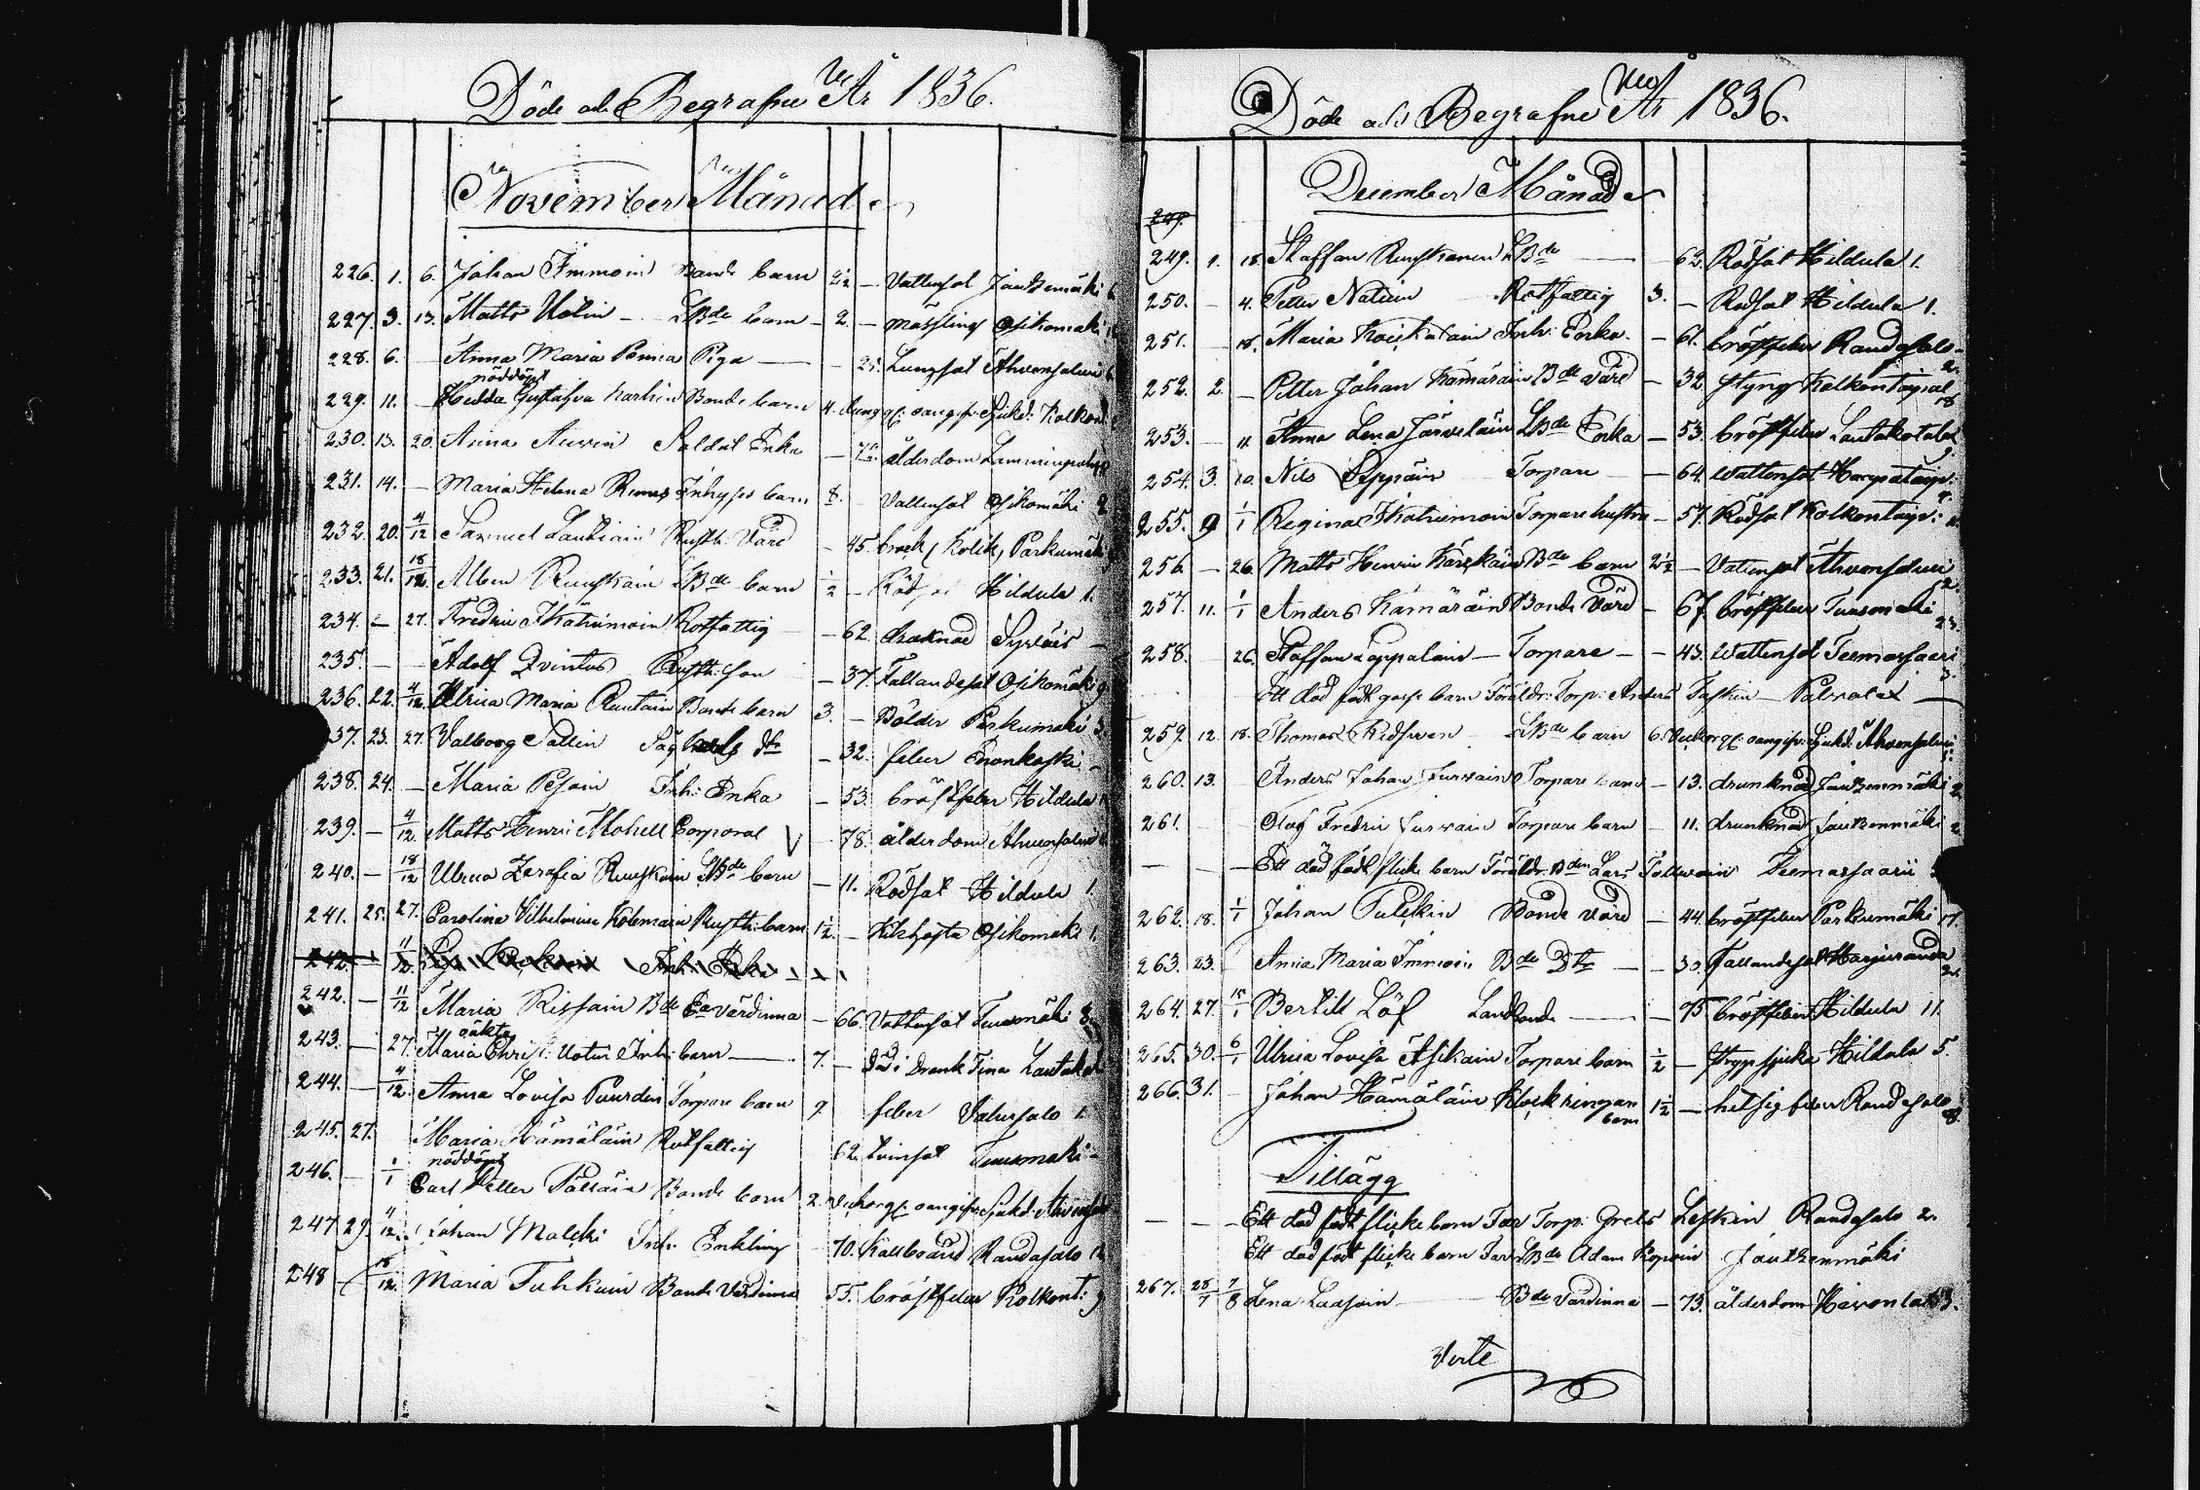 Döde och Begrafne År 1836.
November Månad
226. 1. 6. Johan Immoin Bonde barn 2½ — Vattensot Jautsenmäki 6
227. 3. 13. Matts Ustin — LBde barn — 2. — mässling Osikomäki
228. 6. — Anna Maria Penna Piga — — 25. Lungsot Ahvensalmi 6
nöddöpt
229. 11. — Hedda Gustafva Karhin Bonde barn 4. oangifv: Sjukd: Kolkont
230. 13. 20. Anna Auvin Soldat Enka — 70. ålderdom Lamminpohja
231. 14. — Maria Helena Remes Inhyses barn 8. Vattensot Osikomäki 2
232. 20. 4/12 Samuel Lautiain Rusth. Värd — 45. bråck, kolik, Parkumäki
233. 21. 18/12 Alben Ruuskain LBde barn ½ — Rödsot Hildula 1.
234. — 27. Fredric Ihatsimoin Rotfattig — 62. Syväis —
235. — — Adolf Qvintus Rusth: son — 37. Fallandesot Osikomäki 9.
236. 22. 4/12. Ulrica Maria Rautain Bonde barn 3. — Bölder Parkumäki 3.
237. 23. 27. Valborg Sallin dtr — 32. feber Enonkoski —
238. 24. — Maria Pesoin Inh: Enka — 53. bröstfeber Hildula
239. — 4/12 Matts Henric Mohell Corporal V 78. ålderdom Ahvensalmi
240. — 18/12 Ulrica Serafia Ruuskain LBde barn — 11. Rödsot Hildula 1.
241. 25. 27. Carolina Vilhelmina Kolemain Rusth: barn 1½. — Kikhosta Osikomäki 1.
242. — 11/12 Inh: Enka
242. — 11/12 Maria Rissain Bde Värdinna — 66. Vattusot Tuusmäki 8.
oäkta
243. — 27. Maria Christ: Ustin Inh: barn — 7. — Död i Drank Tina Lautakot
244. — 4/12. Anna Lovisa Puurdin Torpare barn 9 feber Valuesalo 1.
245. 27. Maria Hämäläin Rotfattig 62. tvinsot Tuusmäki —
nöddöpt
246. — 1/1 Carl Petter Pälsäin Bonde barn 2. Veckor gl: oangifv: Sjukd: Ahvensal
247. 29. 4/12. Johan Malski Inh: Enkling 70. Kallbrand Randasalo
248 — 18/12. Maria Tuhkuin Bonde Värdinna 55. bröstfeber Kolkont: 9
Döde och Begrafne År 1836.
December Månad
249.
249. 1. 18. Staffan Ruuskanen LBde — — 62. Rödsot Hildula 1.
250. — 4. Petter Natuin Rotfattig 3. — Rödsot Hildula 1.
251. — 18. Maria Inh: Enka. — 61. bröstfeber Randasalo
2.
252. 2. — Petter Johan Kämäräin Bde värd — 32. styng Kolkontaipal
18
253. — 11 Anna Lena Järveläin LBde Enka — 53. bröstfeber Lautakotalax
9.
254. 3. 10. Nils Seppäin Torpare — 64. Wattensot Harpataip:
255. 9 1/1 Regina Ihatsimoin Torpare hustru — 57. Rödsot Kolkontaip:
256. — 26. Matts Henric Käiskäin Bde barn 2½ — Vattensot Ahvensalmi
2.
257. 11. 1/1 Anders Kämäräin Bonde Värd — 67. bröstfeber Tuusmäki
23.
258. 26. Staffan Loppalain — Torpare — — 43. Wattensot Teemassaari
3.
Ett död född gosse barn Föräldr: Torp: Anders Taskin — Palvalax —
259. 12. 18. Thomas Kedhven LBde barn 6. Veckor gl: oangifv: Sjukd: Ahvensalmi
260. 13. Anders Johan Turvain Torpare barn — 13. drunknad Jautsenmäki 2
261. — — Olof Fredric Turvain Torpare barn — 11. drunknad Jautsenmäki 2
— — — Ett död född flicke barn Föräldr: Bden Lars Tolvain Teemassaari
262. 18. 1/1 Johan Pulskin Bonde Värd — 44. bröstfeber Parkumäki 17.
263. 23. Anna Maria Immoin Bde Dtr — — 30. Fallandesot Harjuranda
2.
264. 27. 15/1 Bertill Löf — — 75 bröstfeber Hildula 11.
265. 30. 6/1 Ulrica Lovisa Asikain Torpare barn ½ — Strypsjuka Hildula 5.
266. 31. Johan Hämäläin Klockringare 1½ — hetsig feber Randasalo
barn
Tillägg
— — — Ett död född flicke barn Far Torp: Grels Leskin Randasalo 2.
Ett död född flicke barn Far LBde Adam Kopoin Jautsenmäki
267. 28/7 7/8 Lena Laasoin — Bde Värdinna — 73. ålderdom Havonlax 3.
Verte